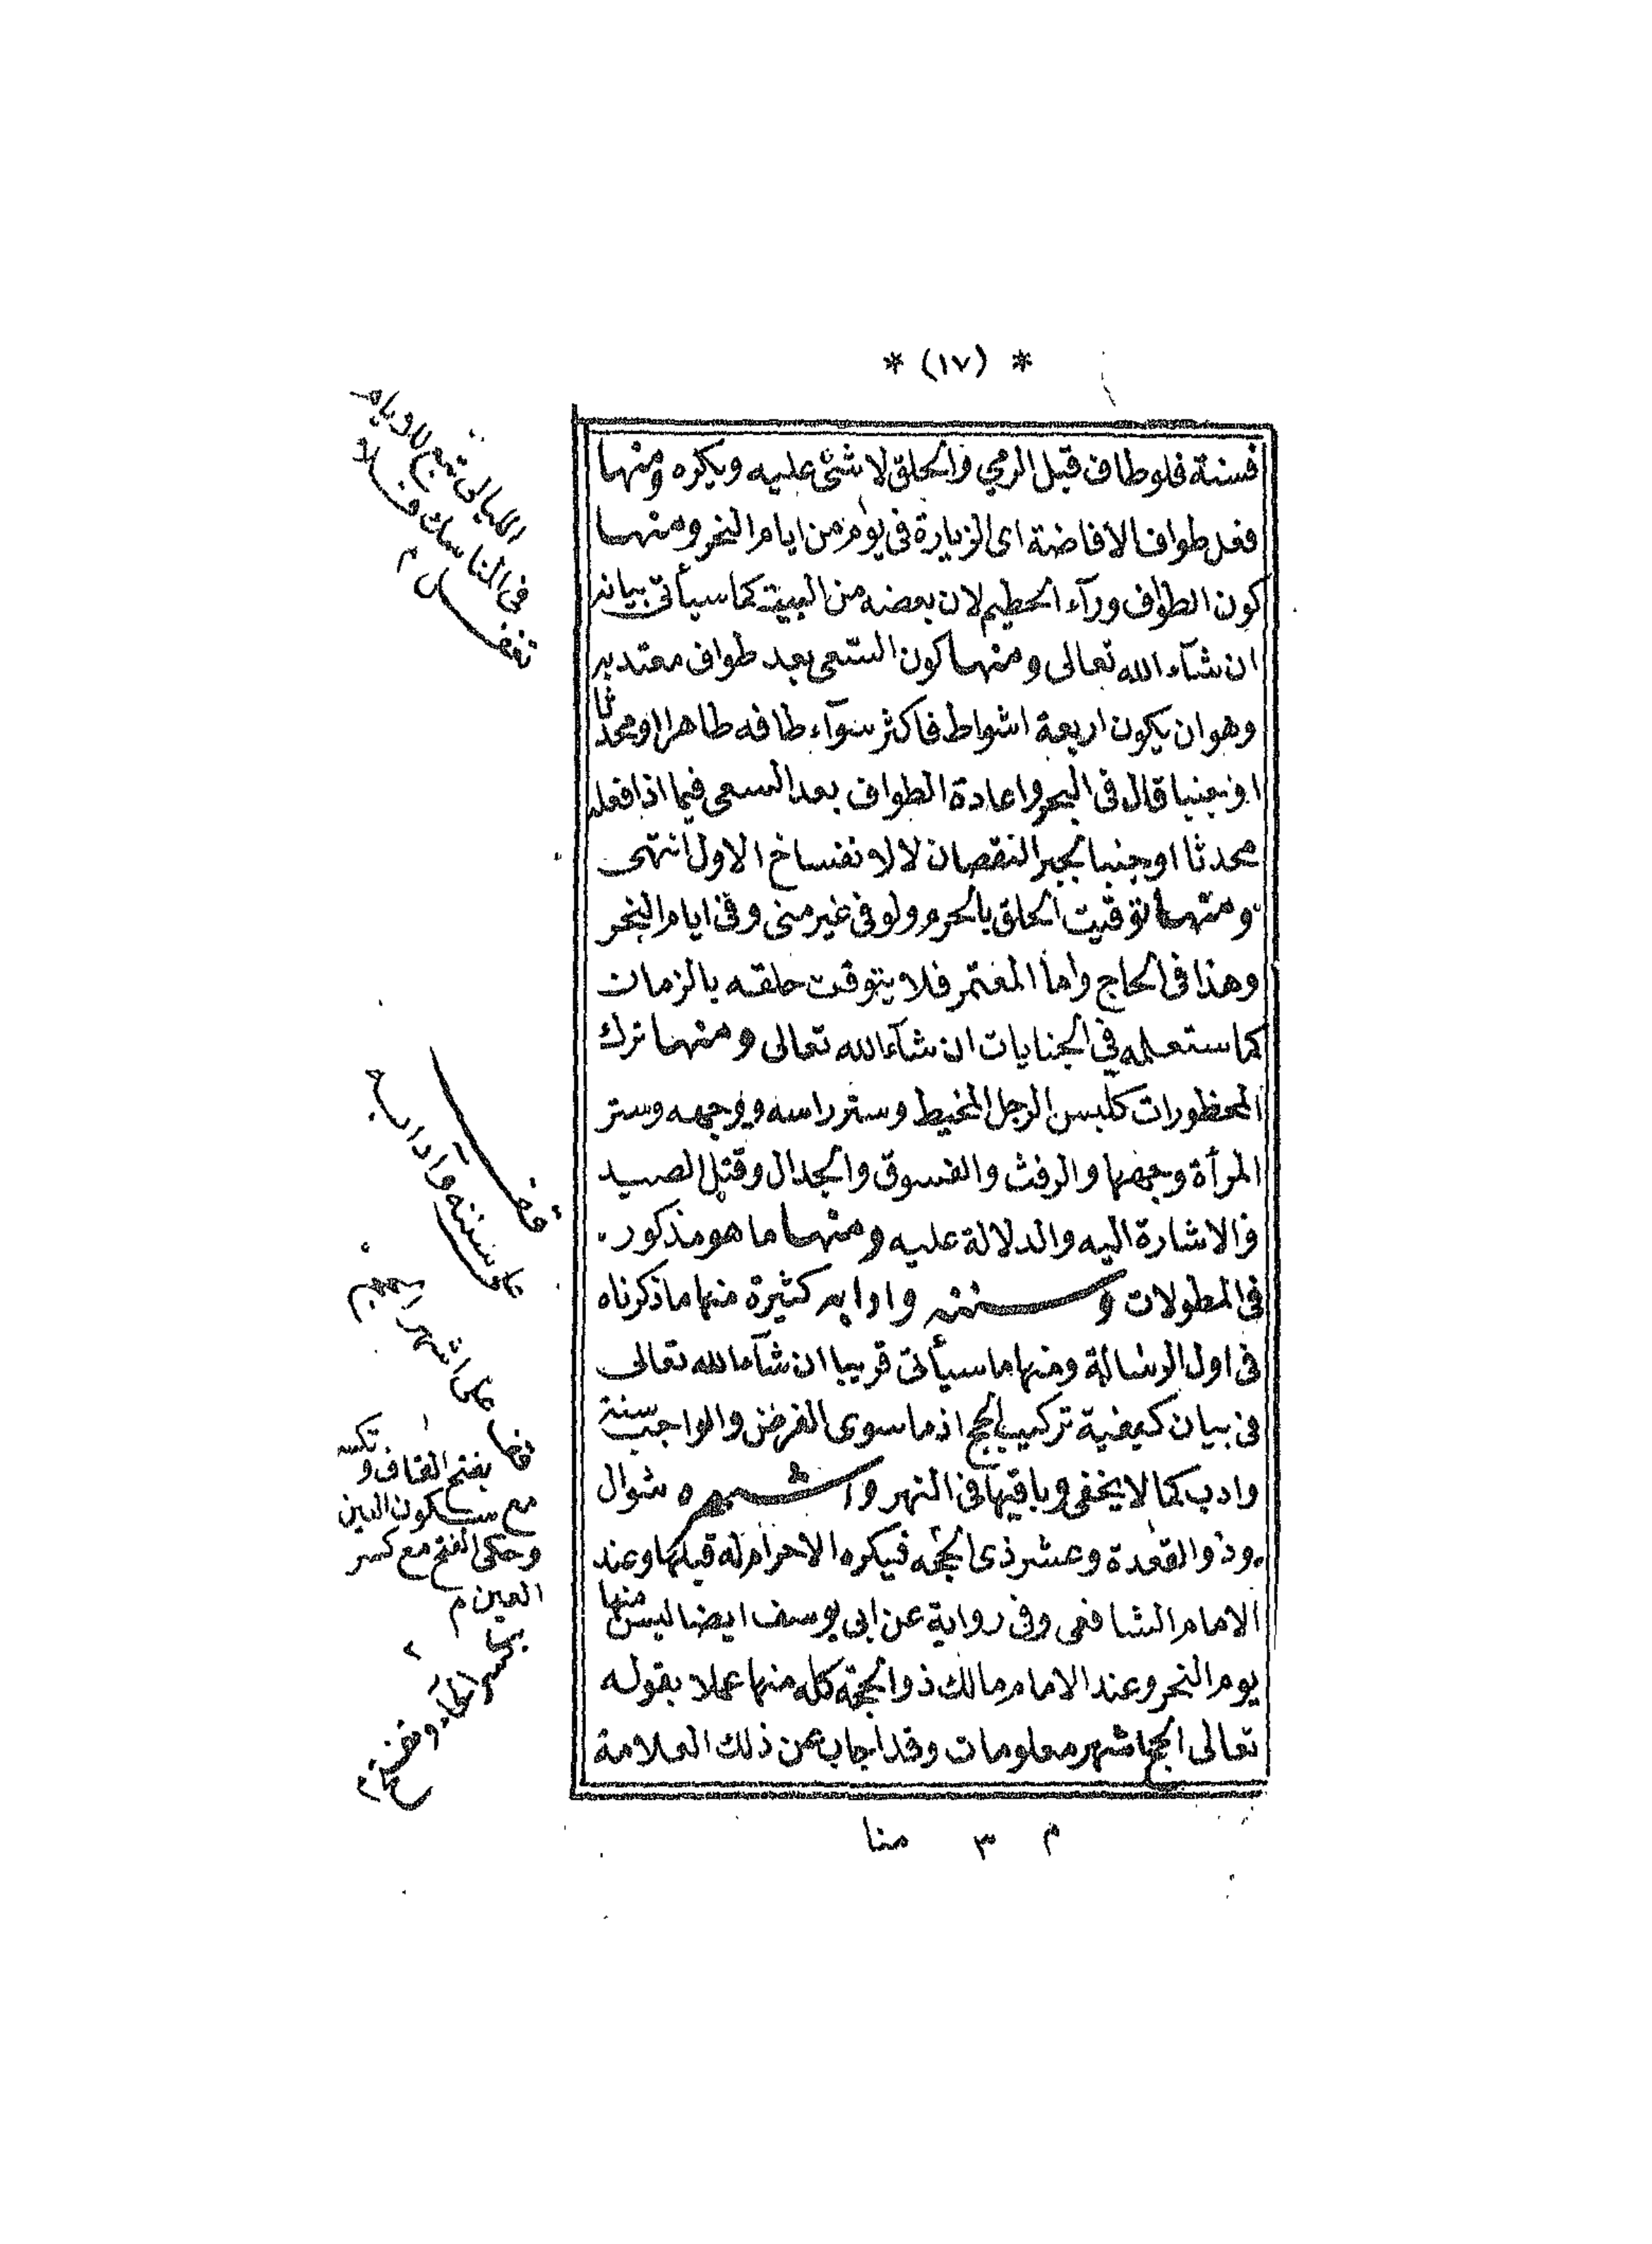 * (١٧) *
فسنة فلو طاف قبل الرمي والحلق لا شئ عليه ويكره ومنها
فعل طواف الافاضة اى الزيارة فى يوم من ايام النحر ومنها
كون الطواف ورآء الحطيم لان بعضه من البيت كما سيأتى بيانه
ان شآء الله تعالى ومنها كون السعى بعد طواف معتد به
وهو ان يكون اربعة اشواط فاكثر سوآء طافه طاهرا او محدثا
او جنبا قال فى البحر واعادة الطواف بعد السعى فيما اذا فعله
محدثا او جنبا لجبر النقصان لا لانفساخ الاول انتهى
ومنها توقيت الحلق بالحرم ولو فى غير منى وفى ايام النحر
وهذا فى الحاج واما المعتمر فلا يتوقت حلقه بالزمان
كما ستعلمه فى الجنايات ان شآء الله تعالى ومنها ترك
المحظورات كلبس الرجل المخيط وستر راسه ووجهه وستر
المرأة وجهها والرفث والفسوق والجدال وقتل الصيد
والاشارة اليه والدلالة عليه ومنها ما هو مذكور
فى المطولات وسننه وادابه كثيرة منها ما ذكرناه
فى اول الرسالة ومنها ما سيأتى قريبا ان شآء الله تعالى
فى بيان كيفية تركيب الحج اذ ما سوى الفرض والواجب سنة
وادب كما لا يخفى وباقيها فى النهر واشهره شوال
وذو القعدة وعشر ذى الحجه فيكره الاحرام له قبلها وعند
الامام الشافعى وفى رواية عن ابى يوسف ايضا ليس منها
يوم النحر وعند الامام مالك ذو الحجة كله منها عملا بقوله
تعالى الحج اشهر معلومات وقد اجاب عن ذلك العلامة
م ٣ منا
الليالى تبع للايام
فى المناسك فلا
تغفل م
سننه وآدابه
اشهر الحج
بفتح القاف وتكسر
مع سكون العين
وحكى الفتح مع كسر
العين م
بكسر الحاء وفتح